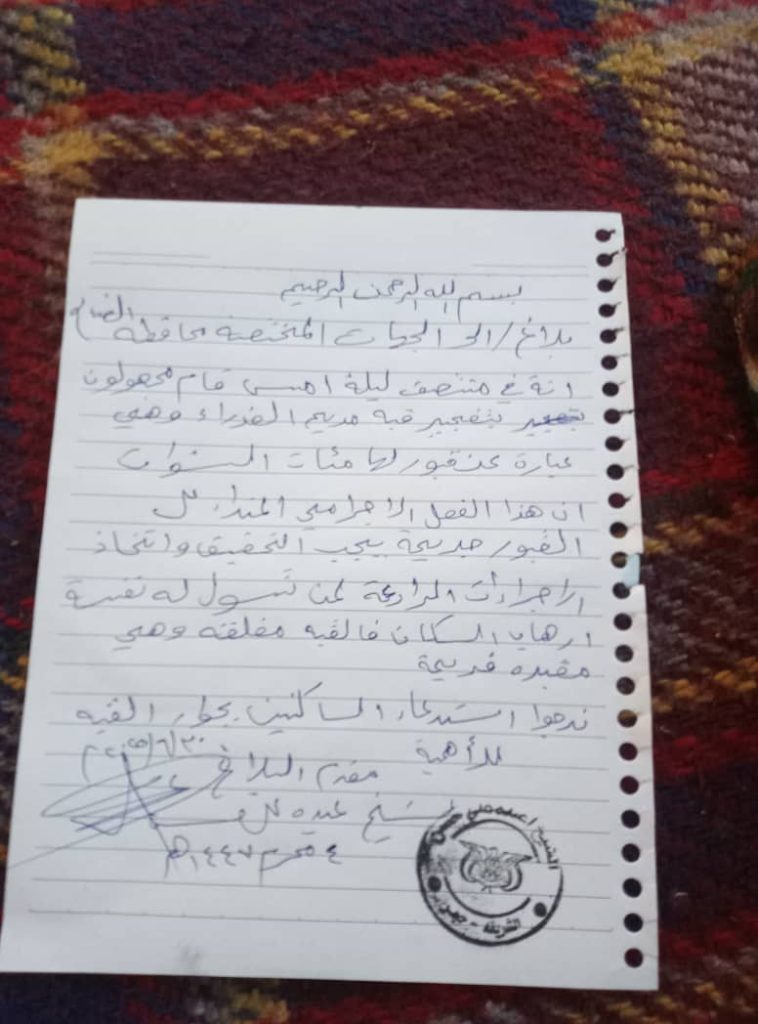 بسم الله الرحمن الرحيم
بلاغ/الى الجهات المختصة محافظة الضالع
انة في منتصف ليلة امس قام مجهولون
بتفجير قبه مريم العذراء وهي
عبارة عن قبور لها مئات السنوات
ان هذا الفعل الاجرامي
القبور جريمة يجب التحقيق واتخاذ
الاجراءات الرادعة لمن تسول له نفسة
ارهاب السكان فالقبه مغلقه وهي
مقبره قديمة
نرجوا استدعاء الساكنين بجوار القبه
للأهمية
٢٠٢٥/٦/٣٠م
مقدم البلاغ
الشيخ عبده علي
٤ محرم ١٤٤٧هـ
الشيخ / عبده علي